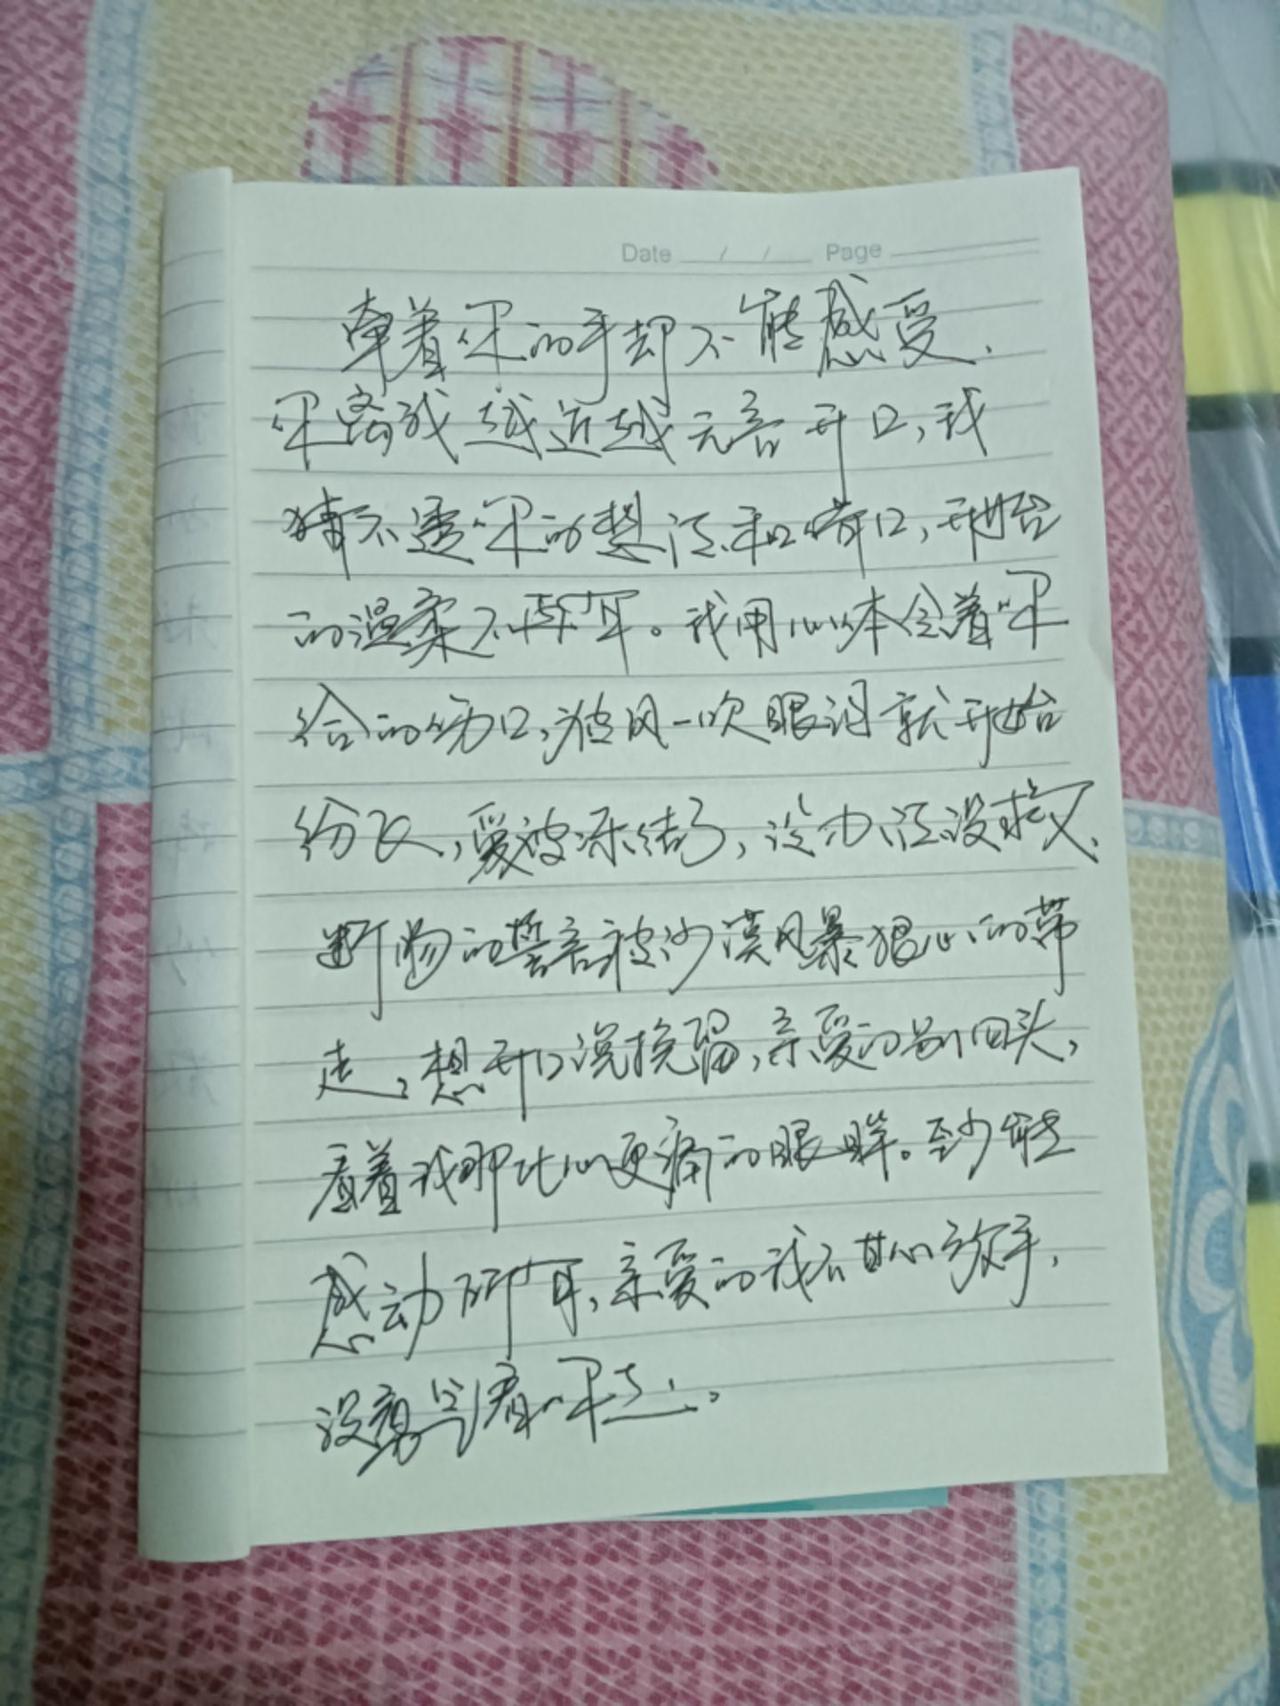 Date / / Page
牵着你的手却不能感受、
你离我越近越无言开口,我
猜不透你的想法和借口,开始
的温柔不所有。我用心体会着你
给的伤口,被风一吹眼泪就开始
纷飞,爱被冻结了,没办法没救、
断肠的誓言被沙漠风暴狠心的带
走,想开口说挽留,亲爱的别回头,
看着我那比心更痛的眼眸。至少能
感动所有,亲爱的我不甘心放手,
没勇气看你走。